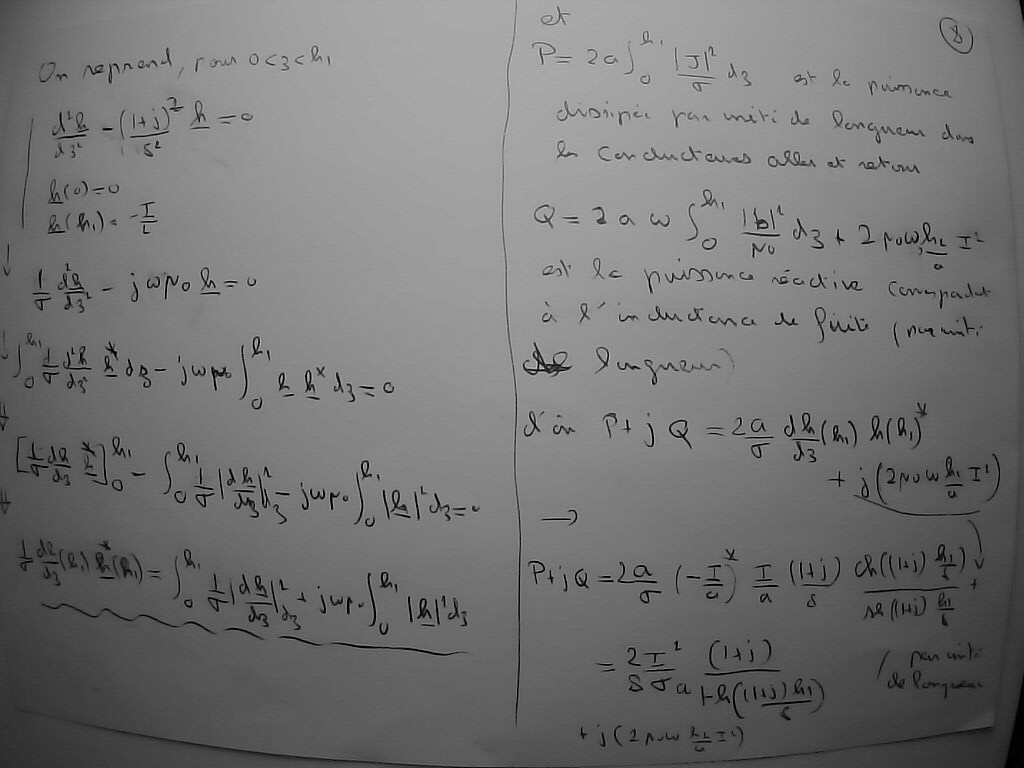 On reprend, pour 0<z<h₁
d²h/dz² - (1+j)²/δ² h = 0
h(0)=0
h(h₁) = -I/L
↓ 1/σ d²h/dz² - jωμ₀ h = 0
↓ ∫₀^h₁ 1/σ d²h/dz² h* dz - jωμ₀ ∫₀^h₁ h h* dz = 0
⇓ [1/σ dh/dz h*]₀^h₁ - ∫₀^h₁ 1/σ |dh/dz|² dz - jωμ₀ ∫₀^h₁ |h|² dz = 0
⇓ 1/σ dh/dz (h₁) h*(h₁) = ∫₀^h₁ 1/σ |dh/dz|² dz + jωμ₀ ∫₀^h₁ |h|² dz
8
et
P = 2a ∫₀^h₁ |J|²/σ dz est la puissance
dissipée par unité de longueur dans
les conducteurs aller et retour
Q = 2aω ∫₀^h₁ |b|²/μ₀ dz + 2μ₀ω h₂/a I²
est la puissance réactive correspondant
à l'inductance de fuite (par unité
de longueur)
d'où P+jQ = 2a/σ dh/dz (h₁) h(h₁)*
+ j(2μ₀ω h₂/a I²)
→
P+jQ = 2a/σ (-I/a)* I/a (1+j)/δ ch((1+j) h₁/δ)/sh((1+j) h₁/δ) +
= 2/δ I²/σa (1+j)/th((1+j)h₁/δ) / par unité
de longueur
+ j(2μ₀ω h₂/a I²)